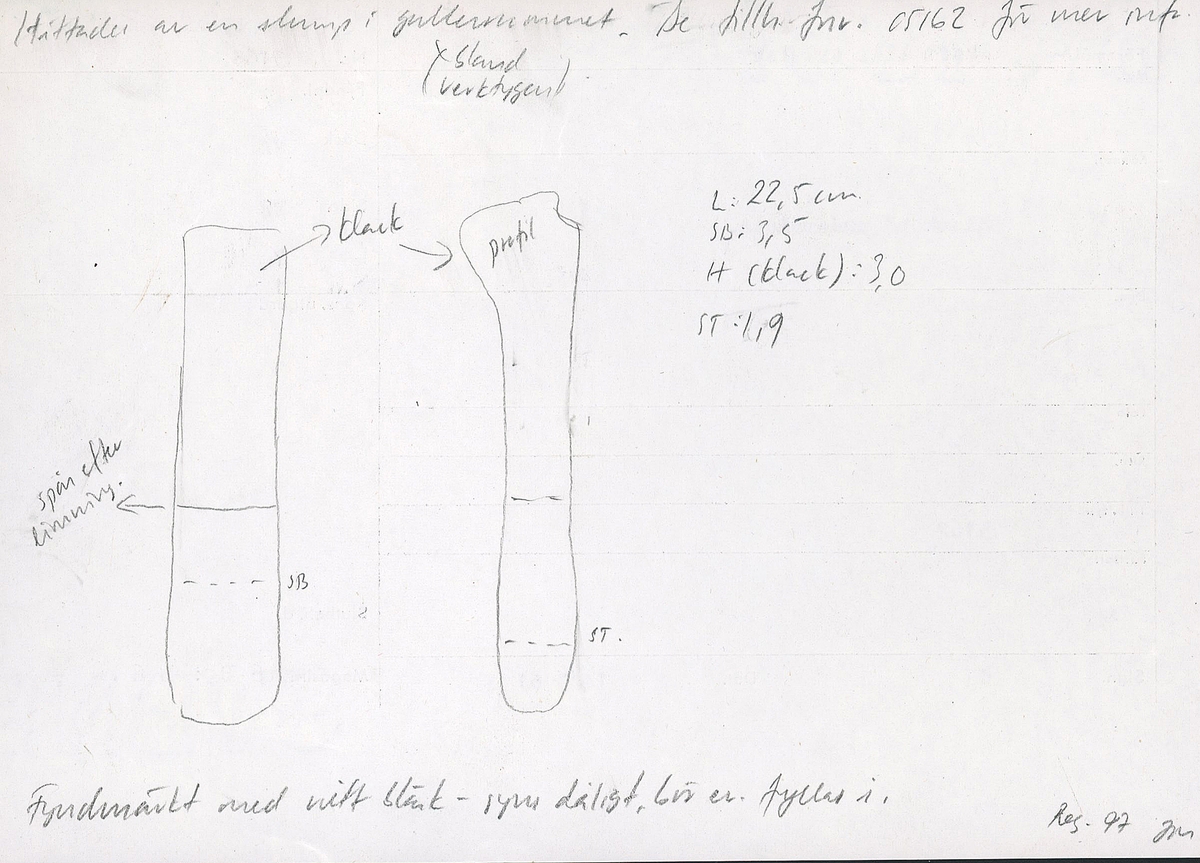 Hittades av en slump i gallerrummet. Se tillh fnr. 05162 för mer info.
(bland
verktygen)
klack
profil
L: 22,5 cm.
SB: 3,5
H (klack): 3,0
ST: 1,9
spår efter
limning.
SB
ST.
Fyndmärkt med vitt bläck - syns dåligt, bör ev. fyllas i.
Reg. 97